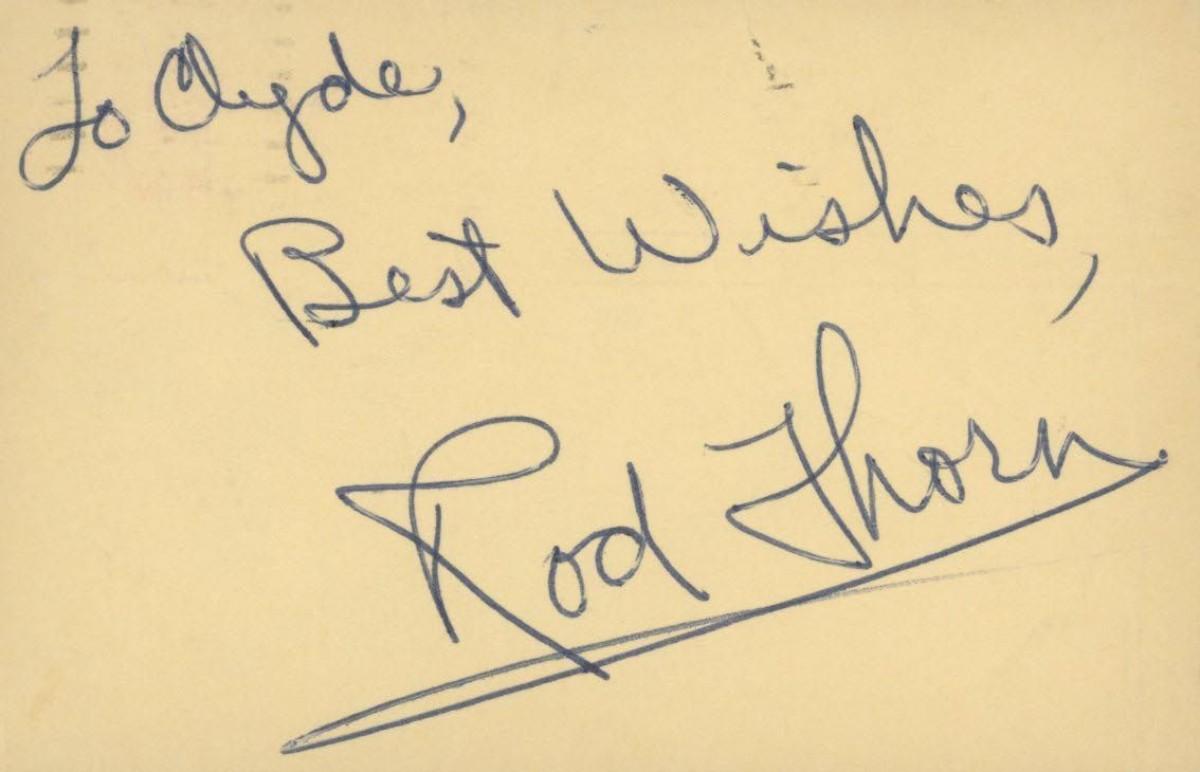 To Clyde,
Best Wishes,
Rod Thorn